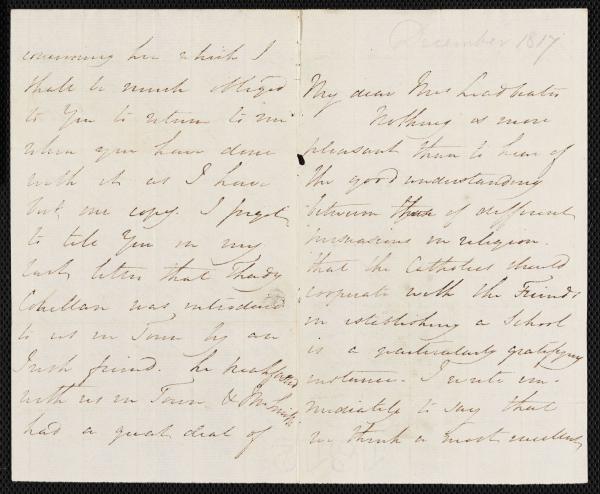 concerning her which I
shall be much obliged
to you to return to me
when you have done
with it as I have
but one copy. I forgot
to tell You in my
last letter that Thady
Conellan was introduced
to us in Town by an
Irish friend. he breakfasted
with us in Town & Mr Smith
had a great deal of
December 1817
My dear Mrs Leadbeater
Nothing is more
pleasant than to hear of
the good understanding
between those of different
persuasions in religion.
that the Catholics should
cooperate with the Friends
in establishing a School
is a particularly gratifying
instance. I write im-
mediately to say that
we think a most excellent